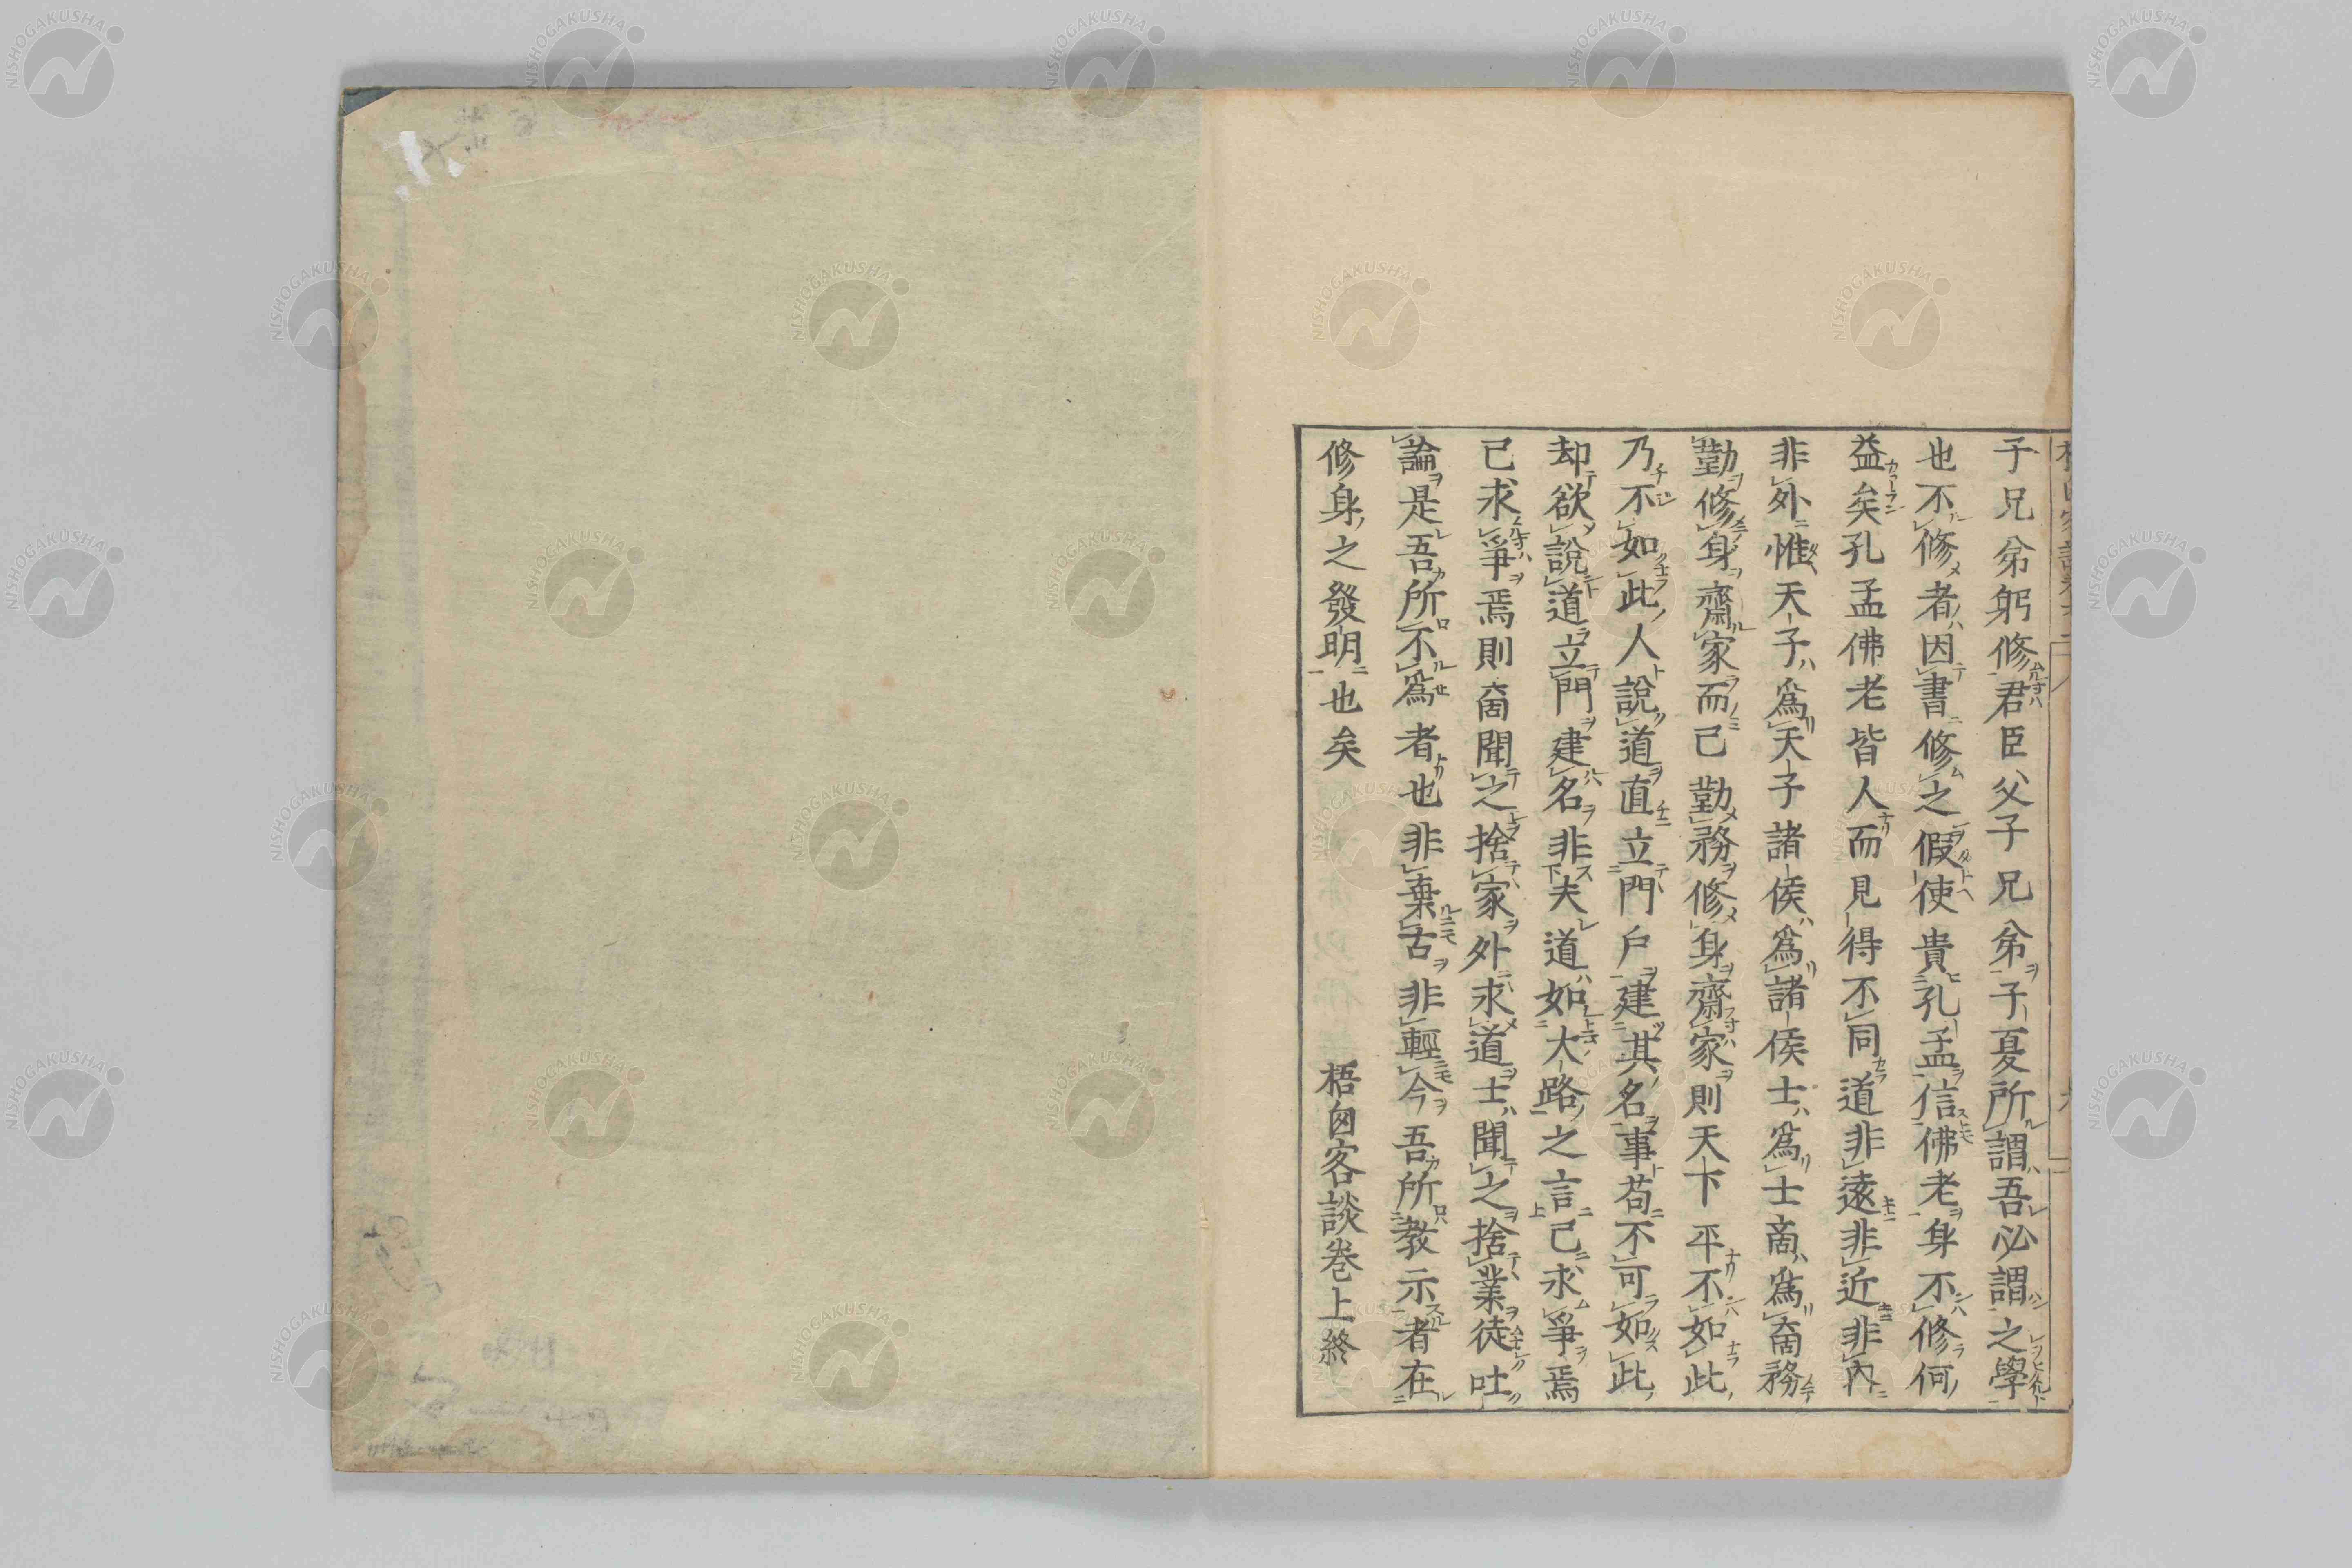 子兄弟躬修君臣父子兄弟子夏所謂吾必謂之學
也不修者因書修之假使貴孔孟信佛老身不修何
益矣孔孟佛老皆人而見得不同道非遠非近非內
非外惟天子爲天子諸侯爲諸侯士爲士商爲商務
勤修身齋家而已勤務修身齋家則天下平不如此
乃不如此人說道直立門戶建其名事苟不可如此
却欲說道立門建名非夫道如大路之言已求爭焉
已求爭焉則商聞之捨家外求道士聞之捨業徒吐
論是吾所不爲者也非棄古非輕今吾所教示者在
修身之發明也矣
梧囱客談巻上終
NISHOGAKUSHA